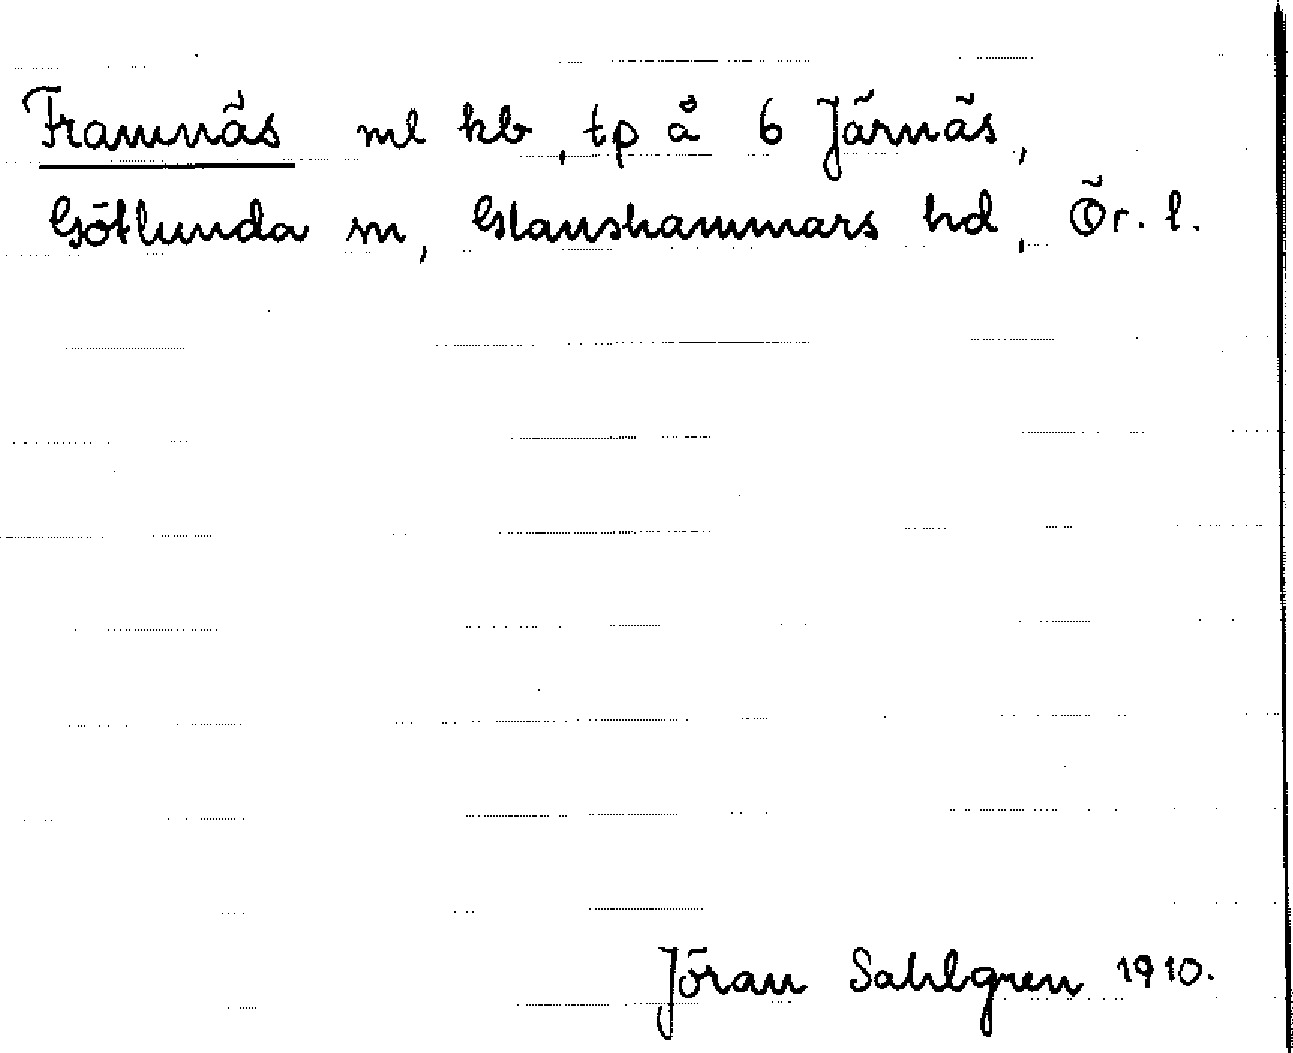 Framnäs ml kb, tp å 6 Järnäs,
Götlunda sn, Glanshammars hd, Ör. l.
Jöran Sahlgren 1910.